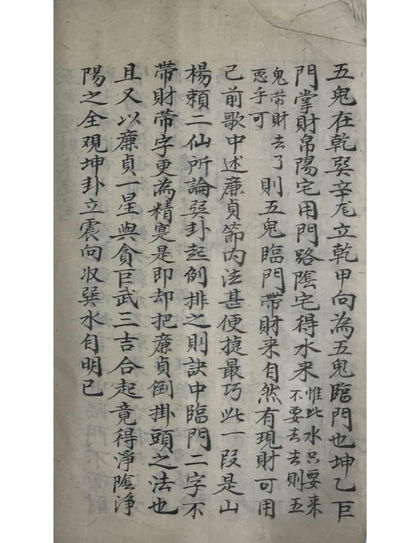 五鬼在乾巽辛凡立乾甲向為五鬼臨門也坤乙巨
門掌財帛陽宅用門路陰宅得水來惟此水只要來不要去去則五
鬼帶財去了惡乎可則五鬼臨門帶財来自然有現財可用
己前歌中述廉貞節内法甚便捷最巧此一段是山
楊賴二仙所論巽卦起例排之則訣中臨門二字不
帶財帶字更為精寔是即却把廉貞倒掛頭之法也
且又以廉貞一星與貪巨武三吉合起竟得淨陰淨
陽之全观坤卦立震向収巽水自明已